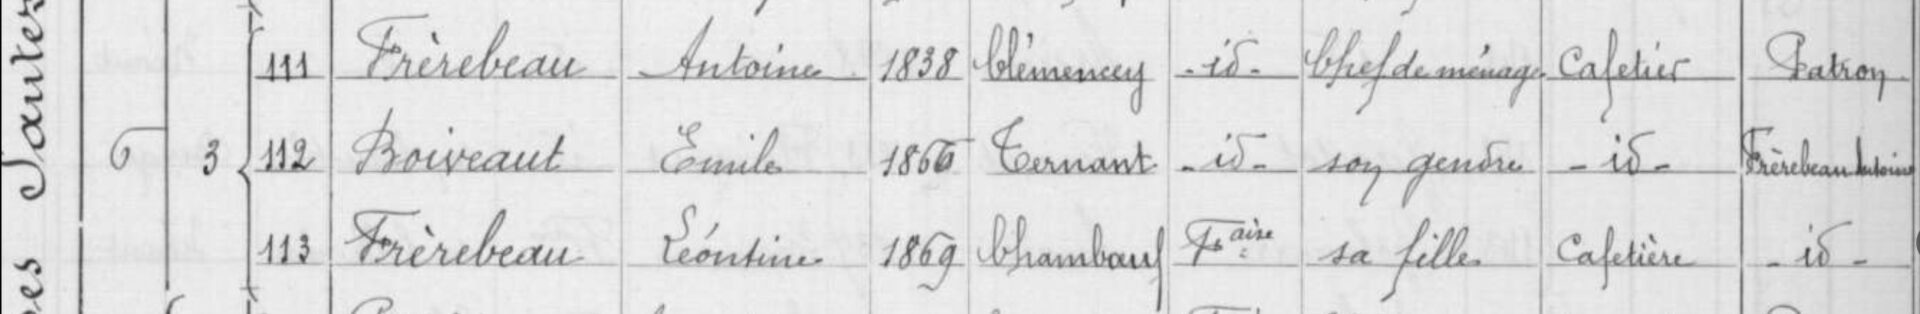 111 Frèrebeau Antoine 1838 Clémencey -id- Chef de ménage Cafetier Patron
6 3 112 Boiveaut Emile 1866 Ternant -id- son gendre -id- Frèrebeau Antoine
113 Frèrebeau Léontine 1869 Chambœuf Fçaise sa fille Cafetière -id-